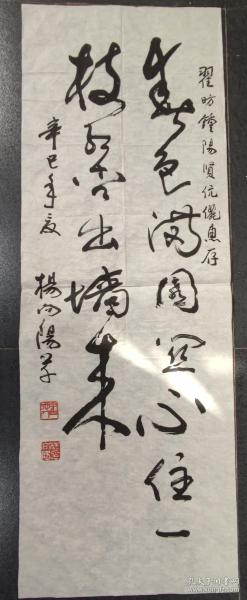 翟昉钟陽賢伉儷惠存
春色满園関不住一
枝紅杏出墻来
辛巳年夏
楊向陽草